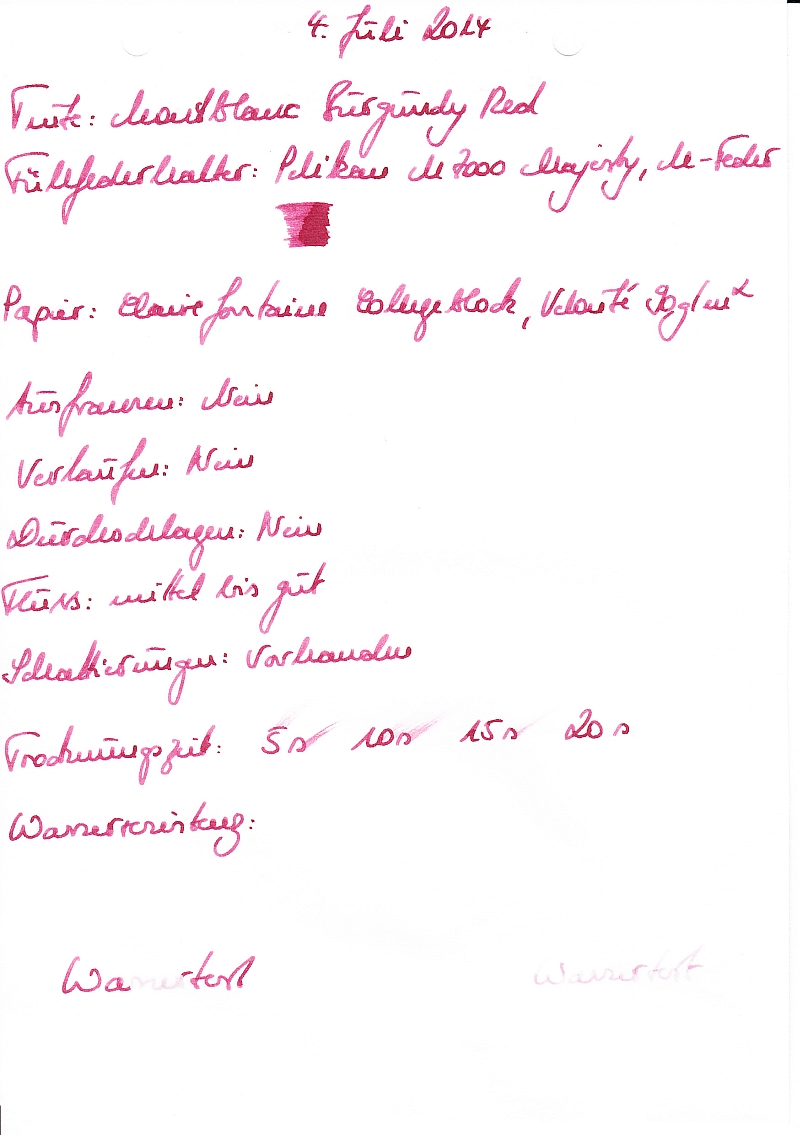 4. Juli 2014
Tinte: Montblanc Burgundy Red
Füllfederhalter: Pelikan M7000 Majesty, M-Feder
Papier: Clairefontaine Collegeblock, Velouté 90g/m²
Ausfransen: Nein
Verlaufen: Nein
Durchschlagen: Nein
Fluss: mittel bis gut
Schattierungen: Vorhanden
Trocknungszeit: 5s 10s 15s 20s
Wasserresistenz:
Wassertest Wassertest